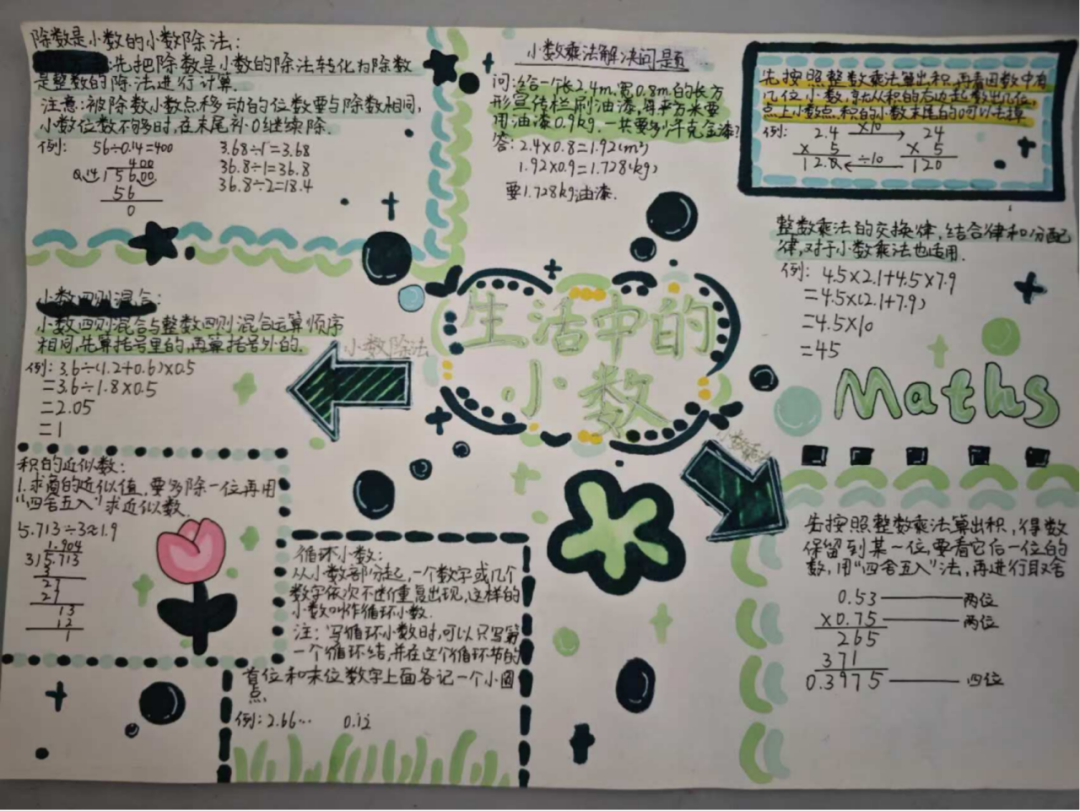 除数是小数的小数除法:
先把除数是小数的除法转化为除数
是整数的除法进行计算.
注意:被除数小数点移动的位数要与除数相同,
小数位数不够时,在末尾补0继续除.
例:
56÷0.14=400
400
0.14)5600
56
0
3.68÷1=3.68
36.8÷1=36.8
36.8÷2=18.4
小数乘法解决问题
问:给一个长2.4m,宽0.8m的长方
形宣传栏刷油漆,每平方米要
用油漆0.9kg.一共要多少千克油漆?
答:2.4×0.8=1.92(m²)
1.92×0.9=1.728(kg)
要1.728kg油漆.
先按照整数乘法算出积,再看因数中有
几位小数,就从积的右边起数出几位
点上小数点,积的小数末尾的0可以去掉
例:
2.4 ×10 24
× 5 × 5
12.0 ÷10 120
整数乘法的交换律,结合律和分配
律,对于小数乘法也适用.
例:4.5×2.1+4.5×7.9
=4.5×(2.1+7.9)
=4.5×10
=45
小数四则混合:
小数四则混合与整数四则混合运算顺序
相同,先算括号里的,再算括号外的.
例:3.6÷(1.2+0.6)×0.5
=3.6÷1.8×0.5
=2.05
=1
小数除法
生活中的
小数
Maths
积的近似数:
1.求商的近似值,要多除一位再用
"四舍五入"求近似数.
5.713÷3≈1.9
1.904
3)5.713
3
27
27
13
12
1
循环小数:
从小数部分起,一个数字或几个
数字依次不断重复出现,这样的
小数叫作循环小数.
注:写循环小数时,可以只写第
一个循环结,并在这个循环节的
首位和末位数字上面各记一个小圆
点.
例:2.66… 0.12
先按照整数乘法算出积,得数
保留到某一位,要看它后一位的
数,用"四舍五入"法,再进行取舍
0.53 两位
×0.75 两位
265
371
0.3975 四位